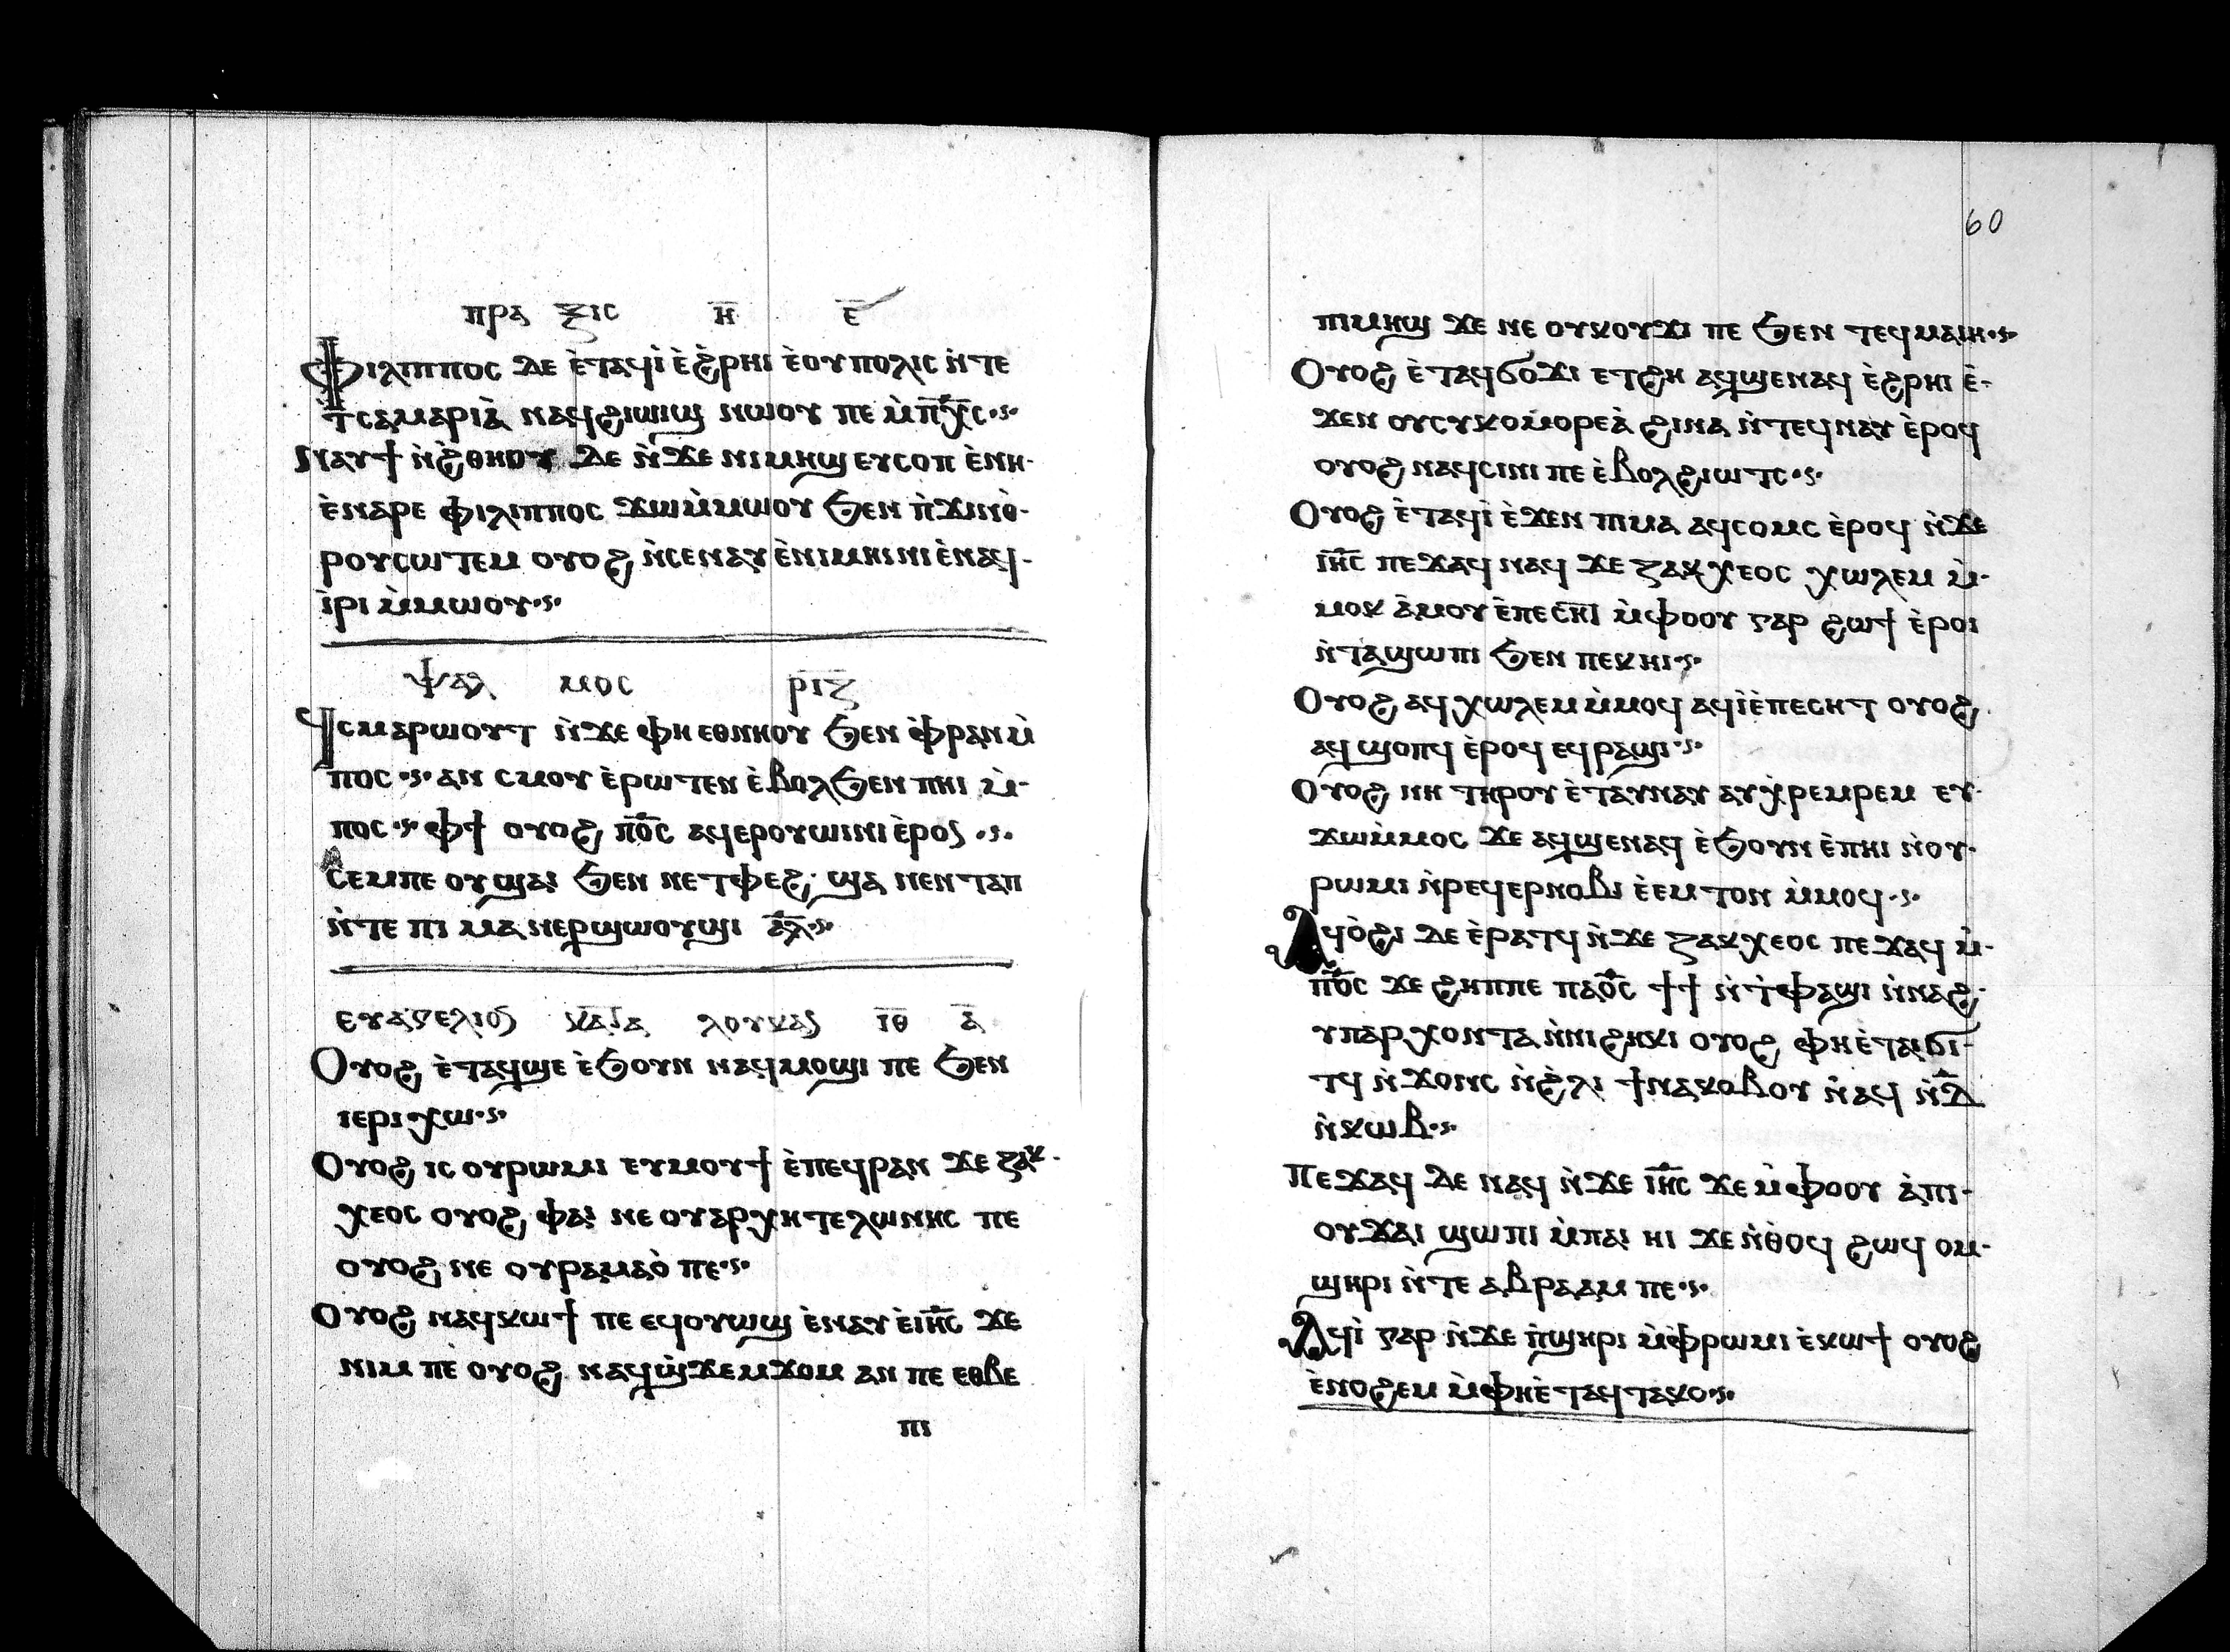 ⲡⲣⲁ ⲝⲓⲥ ⲏ̅ ⲉ̅
Ⲫⲓⲗⲓⲡⲡⲟⲥ ⲇⲉ ⲉ̀ⲧⲁϥⲓ̀ ⲉ̀ϩ̀ⲣⲏⲓ ⲉ̀ⲟⲩⲡⲟⲗⲓⲥ ⲛ̀ⲧⲉ
ϯⲥⲁⲙⲁⲣⲓⲁ̀ ⲛⲁϥϩⲓⲱⲓϣ ⲛⲱⲟⲩ ⲡⲉ ⲙ̀ⲡⲭ̅ⲥ
Ⲛⲁⲩϯ ⲛ̀ϩ̀ⲑⲏⲟⲩ ⲇⲉ ⲛ̀ϫⲉ ⲛⲓⲙⲏϣ ⲉⲩⲥⲟⲡ ⲉ̀ⲛⲏ-
ⲉ̀ⲛⲁⲣⲉ ⲫⲓⲗⲓⲡⲡⲟⲥ ϫⲱⲙ̀ⲙⲱⲟⲩ ϧⲉⲛ ⲡ̀ϫⲓⲛⲑ̀-
ⲣⲟⲩⲥⲱⲧⲉⲙ ⲟⲩⲟϩ ⲛ̀ⲥⲉⲛⲁⲩ ⲉ̀ⲛⲓⲙⲏⲓⲛⲓ ⲉ̀ⲛⲁϥ-
ⲓ̀ⲣⲓ ⲙ̀ⲙⲱⲟⲩ
ⲯⲁⲗ ⲙⲟⲥ ⲣ̅ⲓ̅ⲍ̅
Ϥⲥⲙⲁⲣⲱⲟⲩⲧ ⲛ̀ϫⲉ ⲫⲏ ⲉⲑⲛⲏⲟⲩ ϧⲉⲛ ⲫ̀ⲣⲁⲛ ⲙ̀
ⲡⲟⲥ ⲁⲛ ⲥⲙⲟⲩ ⲉ̀ⲣⲱⲧⲉⲛ ⲉ̀ⲃⲟⲗϧⲉⲛ ⲡⲏⲓ ⲙ̀-
ⲡⲟⲥ ⲫϯ ⲟⲩⲟϩ ⲡⲟ̅ⲥ ⲁϥⲉⲣⲟⲩⲱⲓⲛⲓ ⲉ̀ⲣⲟⲥ
Ⲥⲉⲙⲡⲉ ⲟⲩϣⲁⲓ ϧⲉⲛ ⲛⲉⲧⲫⲉϩ ϣⲁ ⲛⲉⲛ ⲧⲁⲡ
ⲛ̀ⲧⲉ ⲡⲓ ⲙⲁ ⲛⲉⲣϣⲱⲟⲩϣⲓ ⲁ̅ⲗ̅
ⲉⲩⲁⲅⲉⲗⲓⲟⲥ ⲕⲁⲧⲁ ⲗⲟⲩⲕⲁⲥ ⲓ̅ⲑ̅ ⲁ̅
Ⲟⲩⲟϩ ⲉ̀ⲧⲁϥϣⲉ ⲉ̀ϧⲟⲩⲛ ⲛⲁϥⲙⲟϣⲓ ⲡⲉ ϧⲉⲛ
ⲓⲉⲣⲓⲭⲱ
Ⲟⲩⲟϩ ⲓⲥ ⲟⲩⲣⲱⲙⲓ ⲉⲩⲙⲟⲩϯ ⲉ̀ⲡⲉϥⲣⲁⲛ ϫⲉ ⲍⲁⲕ-
ⲭⲉⲟⲥ ⲟⲩⲟϩ ⲫⲁⲓ ⲛⲉ ⲟⲩⲁⲣⲭⲏⲧⲉⲗⲱⲛⲏⲥ ⲡⲉ
ⲟⲩⲟϩ ⲛⲉ ⲟⲩⲣⲁⲙⲁⲟ̀ ⲡⲉ
Ⲟⲩⲟϩ ⲛⲁϥⲕⲱϯ ⲡⲉ ⲉϥⲟⲩⲱϣ ⲉ̀ⲛⲁⲩ ⲉ̀ⲓⲏ̅ⲥ ϫⲉ
ⲛⲓⲙ ⲡⲉ̀ ⲟⲩⲟϩ ⲛⲁϥϣ̀ϫⲉⲙϫⲟⲙ ⲁⲛ ⲡⲉ ⲉⲑⲃⲉ
ⲡⲓ
60
ⲡⲓⲙⲏϣ ϫⲉ ⲛⲉ ⲟⲩⲕⲟⲩϫⲓ ⲡⲉ ϧⲉⲛ ⲧⲉϥⲙⲁⲓⲏ
Ⲟⲩⲟϩ ⲉ̀ⲧⲁϥϭⲟϫⲓ ⲉⲧϩⲏ ⲁϥϣⲉⲛⲁϥ ⲉ̀ϩⲣⲏⲓ ⲉ̀-
ϫⲉⲛ ⲟⲩⲥⲩⲕⲟⲙⲟⲣⲉⲁ̀ ϩⲓⲛⲁ ⲛ̀ⲧⲉϥⲛⲁⲩ ⲉ̀ⲣⲟϥ
ⲟⲩⲟϩ ⲛⲁϥⲥⲓⲛⲓ ⲡⲉ ⲉ̀ⲃⲟⲗϩⲓⲱⲧⲥ
Ⲟⲩⲟϩ ⲉ̀ⲧⲁϥⲓ̀ ⲉ̀ϫⲉⲛ ⲡⲓⲙⲁ ⲁϥⲥⲟⲙⲥ ⲉ̀ⲣⲟϥ ⲛ̀ϫⲉ
ⲓⲏ̅ⲥ ⲡⲉϫⲁϥ ⲛⲁϥ ϫⲉ ⲍⲁⲕⲭⲉⲟⲥ ⲭⲱⲗⲉⲙ ⲙ̀-
ⲙⲟⲕ ⲁ̀ⲙⲟⲩ ⲉ̀ⲡⲉⲥⲏⲓ ⲙ̀ⲫⲟⲟⲩ ⲅⲁⲣ ϩⲱϯ ⲉ̀ⲣⲟⲓ
ⲛ̀ⲧⲁϣⲱⲡⲓ ϧⲉⲛ ⲡⲉⲕⲏⲓ
Ⲟⲩⲟϩ ⲁϥⲭⲱⲗⲉⲙ ⲙ̀ⲙⲟϥ ⲁϥⲓ̀ ⲉ̀ⲡⲉⲥⲏⲧ ⲟⲩⲟϩ
ⲁϥϣⲟⲡϥ ⲉ̀ⲣⲟϥ ⲉϥⲣⲁϣⲓ
Ⲟⲩⲟϩ ⲛⲏ ⲧⲏⲣⲟⲩ ⲉ̀ⲧⲁⲩⲛⲁⲩ ⲁⲩⲭ̀ⲣⲉⲙⲣⲉⲙ ⲉⲩ-
ϫⲱⲙ̀ⲙⲟⲥ ϫⲉ ⲁϥϣⲉⲛⲁϥ ⲉ̀ϧⲟⲩⲛ ⲉ̀ⲡⲏⲓ ⲛ̀ⲟⲩ-
ⲣⲱⲙⲓ ⲛ̀ⲣⲉϥⲉⲣⲛⲟⲃⲓ ⲉ̀ⲉⲙⲧⲟⲛ ⲙ̀ⲙⲟϥ
Ⲁϥⲟ̀ϩⲓ ⲇⲉ ⲉ̀ⲣⲁⲧϥ ⲛ̀ϫⲉ ⲍⲁⲕⲭⲉⲟⲥ ⲡⲉϫⲁϥ ⲙ̀-
ⲡⲟ̅ⲥ ϫⲉ ϩⲏⲡⲡⲉ ⲡⲁⲟ̅ⲥ ϯϯ ⲛ̀ⲧ̀ⲫⲁϣⲓ ⲛ̀ⲛⲁϩ-
ⲩⲡⲁⲣⲭⲟⲛⲧⲁ ⲛ̀ⲛⲓϩⲏⲕⲓ ⲟⲩⲟϩ ⲫⲏ ⲉ̀ⲧⲁⲓϭⲓ-
ⲧϥ ⲛ̀ϫⲟⲛⲥ ⲛ̀ϩ̀ⲗⲓ ϯⲛⲁⲕⲟⲃⲟⲩ ⲛⲁϥ ⲛ̀ⲇ̅
ⲛ̀ⲕⲱⲃ
Ⲡⲉϫⲁϥ ⲇⲉ ⲛⲁϥ ⲛ̀ϫⲉ ⲓⲏ̅ⲥ ϫⲉ ⲙ̀ⲫⲟⲟⲩ ⲁ̀ⲡⲓ-
ⲟⲩϫⲁⲓ ϣⲱⲡⲓ ⲙ̀ⲡⲁⲓ ⲏⲓ ϫⲉ ⲛ̀ⲑⲟϥ ϩⲱϥ ⲟⲙ-
ϣⲏⲣⲓ ⲛ̀ⲧⲉ ⲁⲃⲣⲁⲁⲙ ⲡⲉ
Ⲁϥⲓ̀ ⲅⲁⲣ ⲛ̀ϫⲉ ⲡ̀ϣⲏⲣⲓ ⲙ̀ⲫ̀ⲣⲱⲙⲓ ⲉ̀ⲕⲱϯ ⲟⲩⲟϩ
ⲉ̀ⲛⲟϩⲉⲙ ⲙ̀ⲫⲏ ⲉ̀ⲧⲁϥⲧⲁⲕⲟ